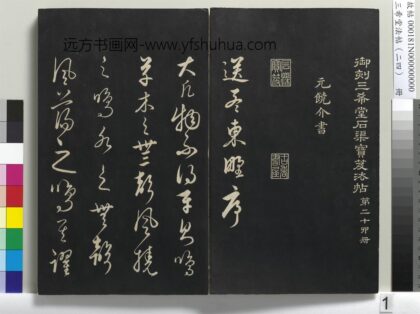 远方书画网-www.yfshuhua.com
故帖 000181N000000000
三希堂法帖(二四)
御刻三希堂石渠寶笈法帖 第二十四册
元饒介書
送孟東野序
大凡物不得平則鳴
草木之無聲風撓
之鳴水之無聲
風蕩之鳴其躍
1